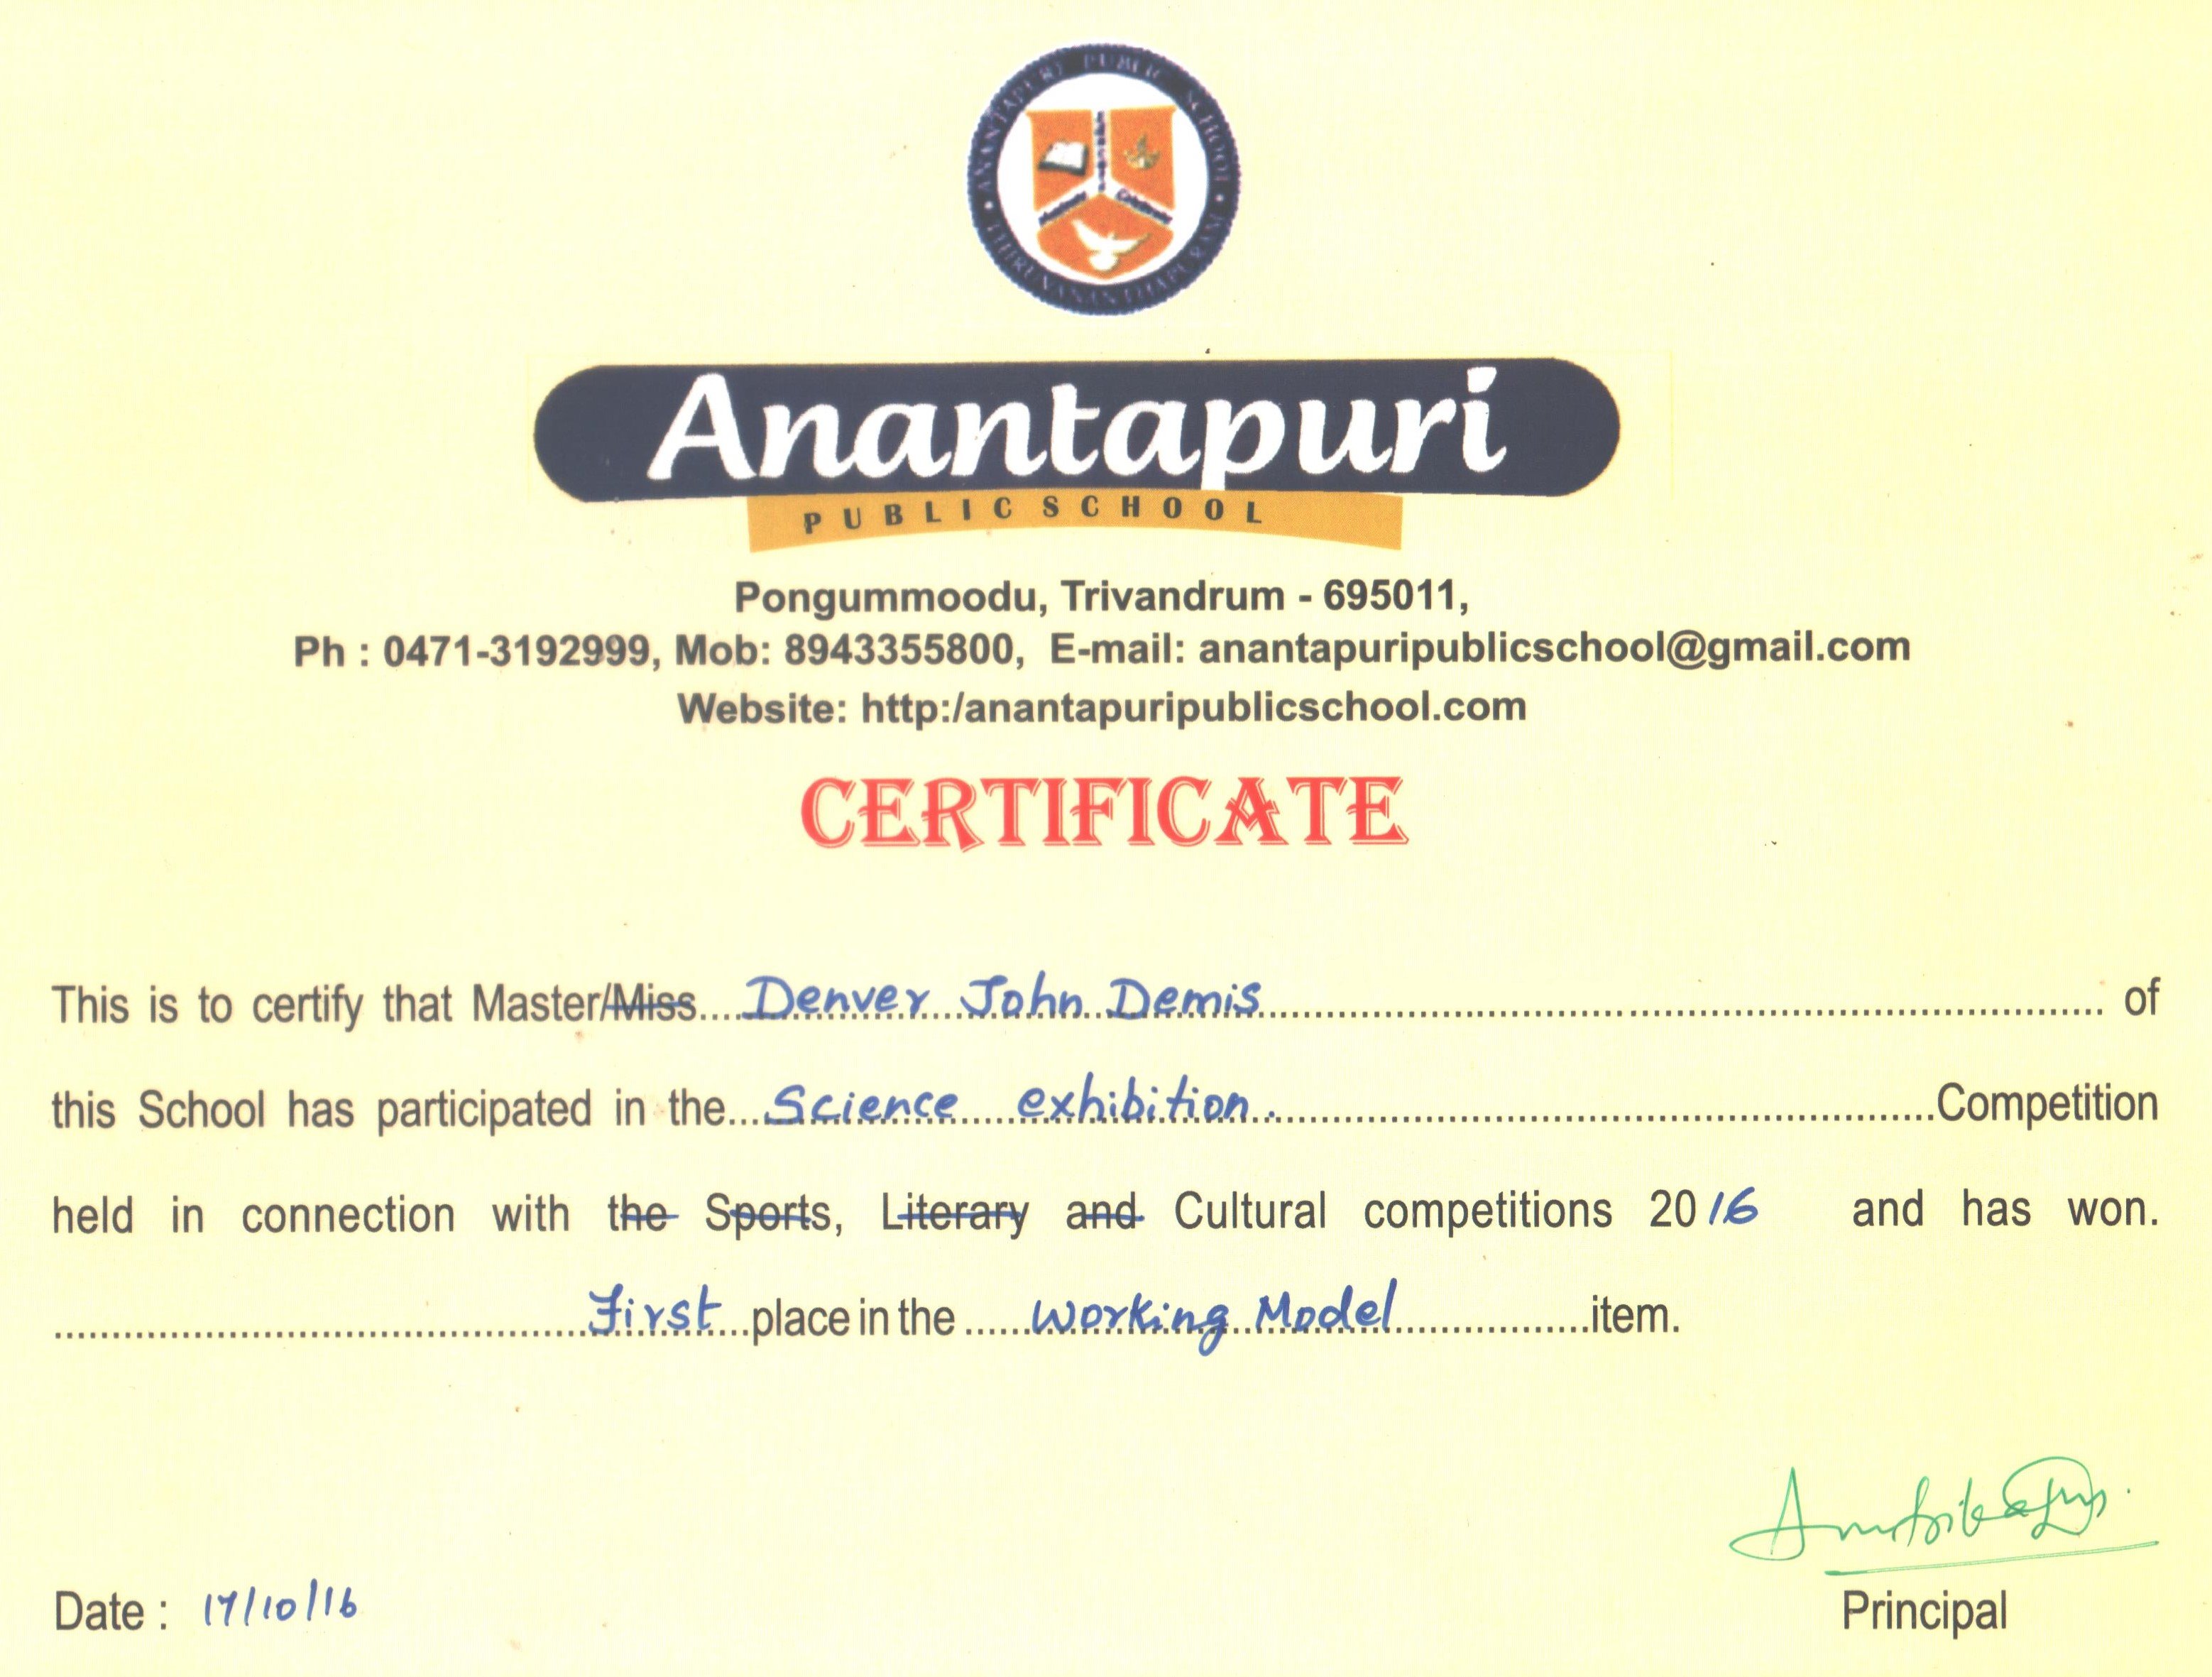 ANANTAPURI PUBLIC SCHOOL
THIRUVANANTHAPURAM
Anantapuri
PUBLIC SCHOOL
Pongummoodu, Trivandrum - 695011,
Ph : 0471-3192999, Mob: 8943355800, E-mail: anantapuripublicschool@gmail.com
Website: http:/anantapuripublicschool.com
CERTIFICATE
This is to certify that Master/Miss....Denver John Demis.... of
this School has participated in the...Science exhibition....Competition
held in connection with the Sports, Literary and Cultural competitions 2016 and has won.
....First...place in the ......Working Model......item.
Date : 17/10/16
Principal